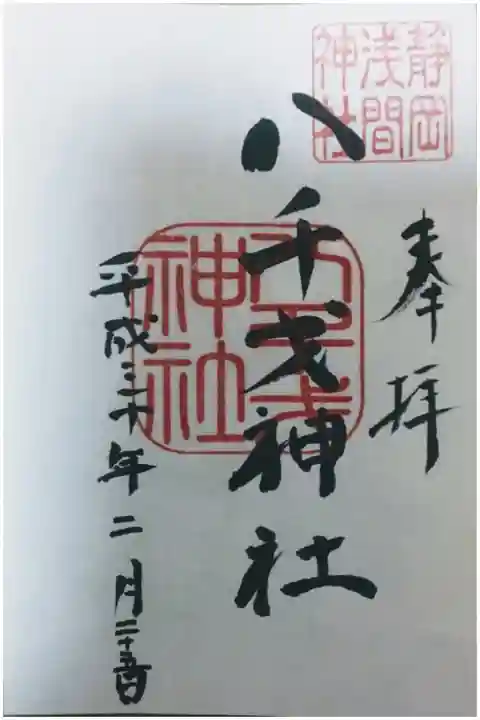 静岡
浅間
神社
奉拝
八千戈神社
八千戈
神社
平成三十年二月二十五日